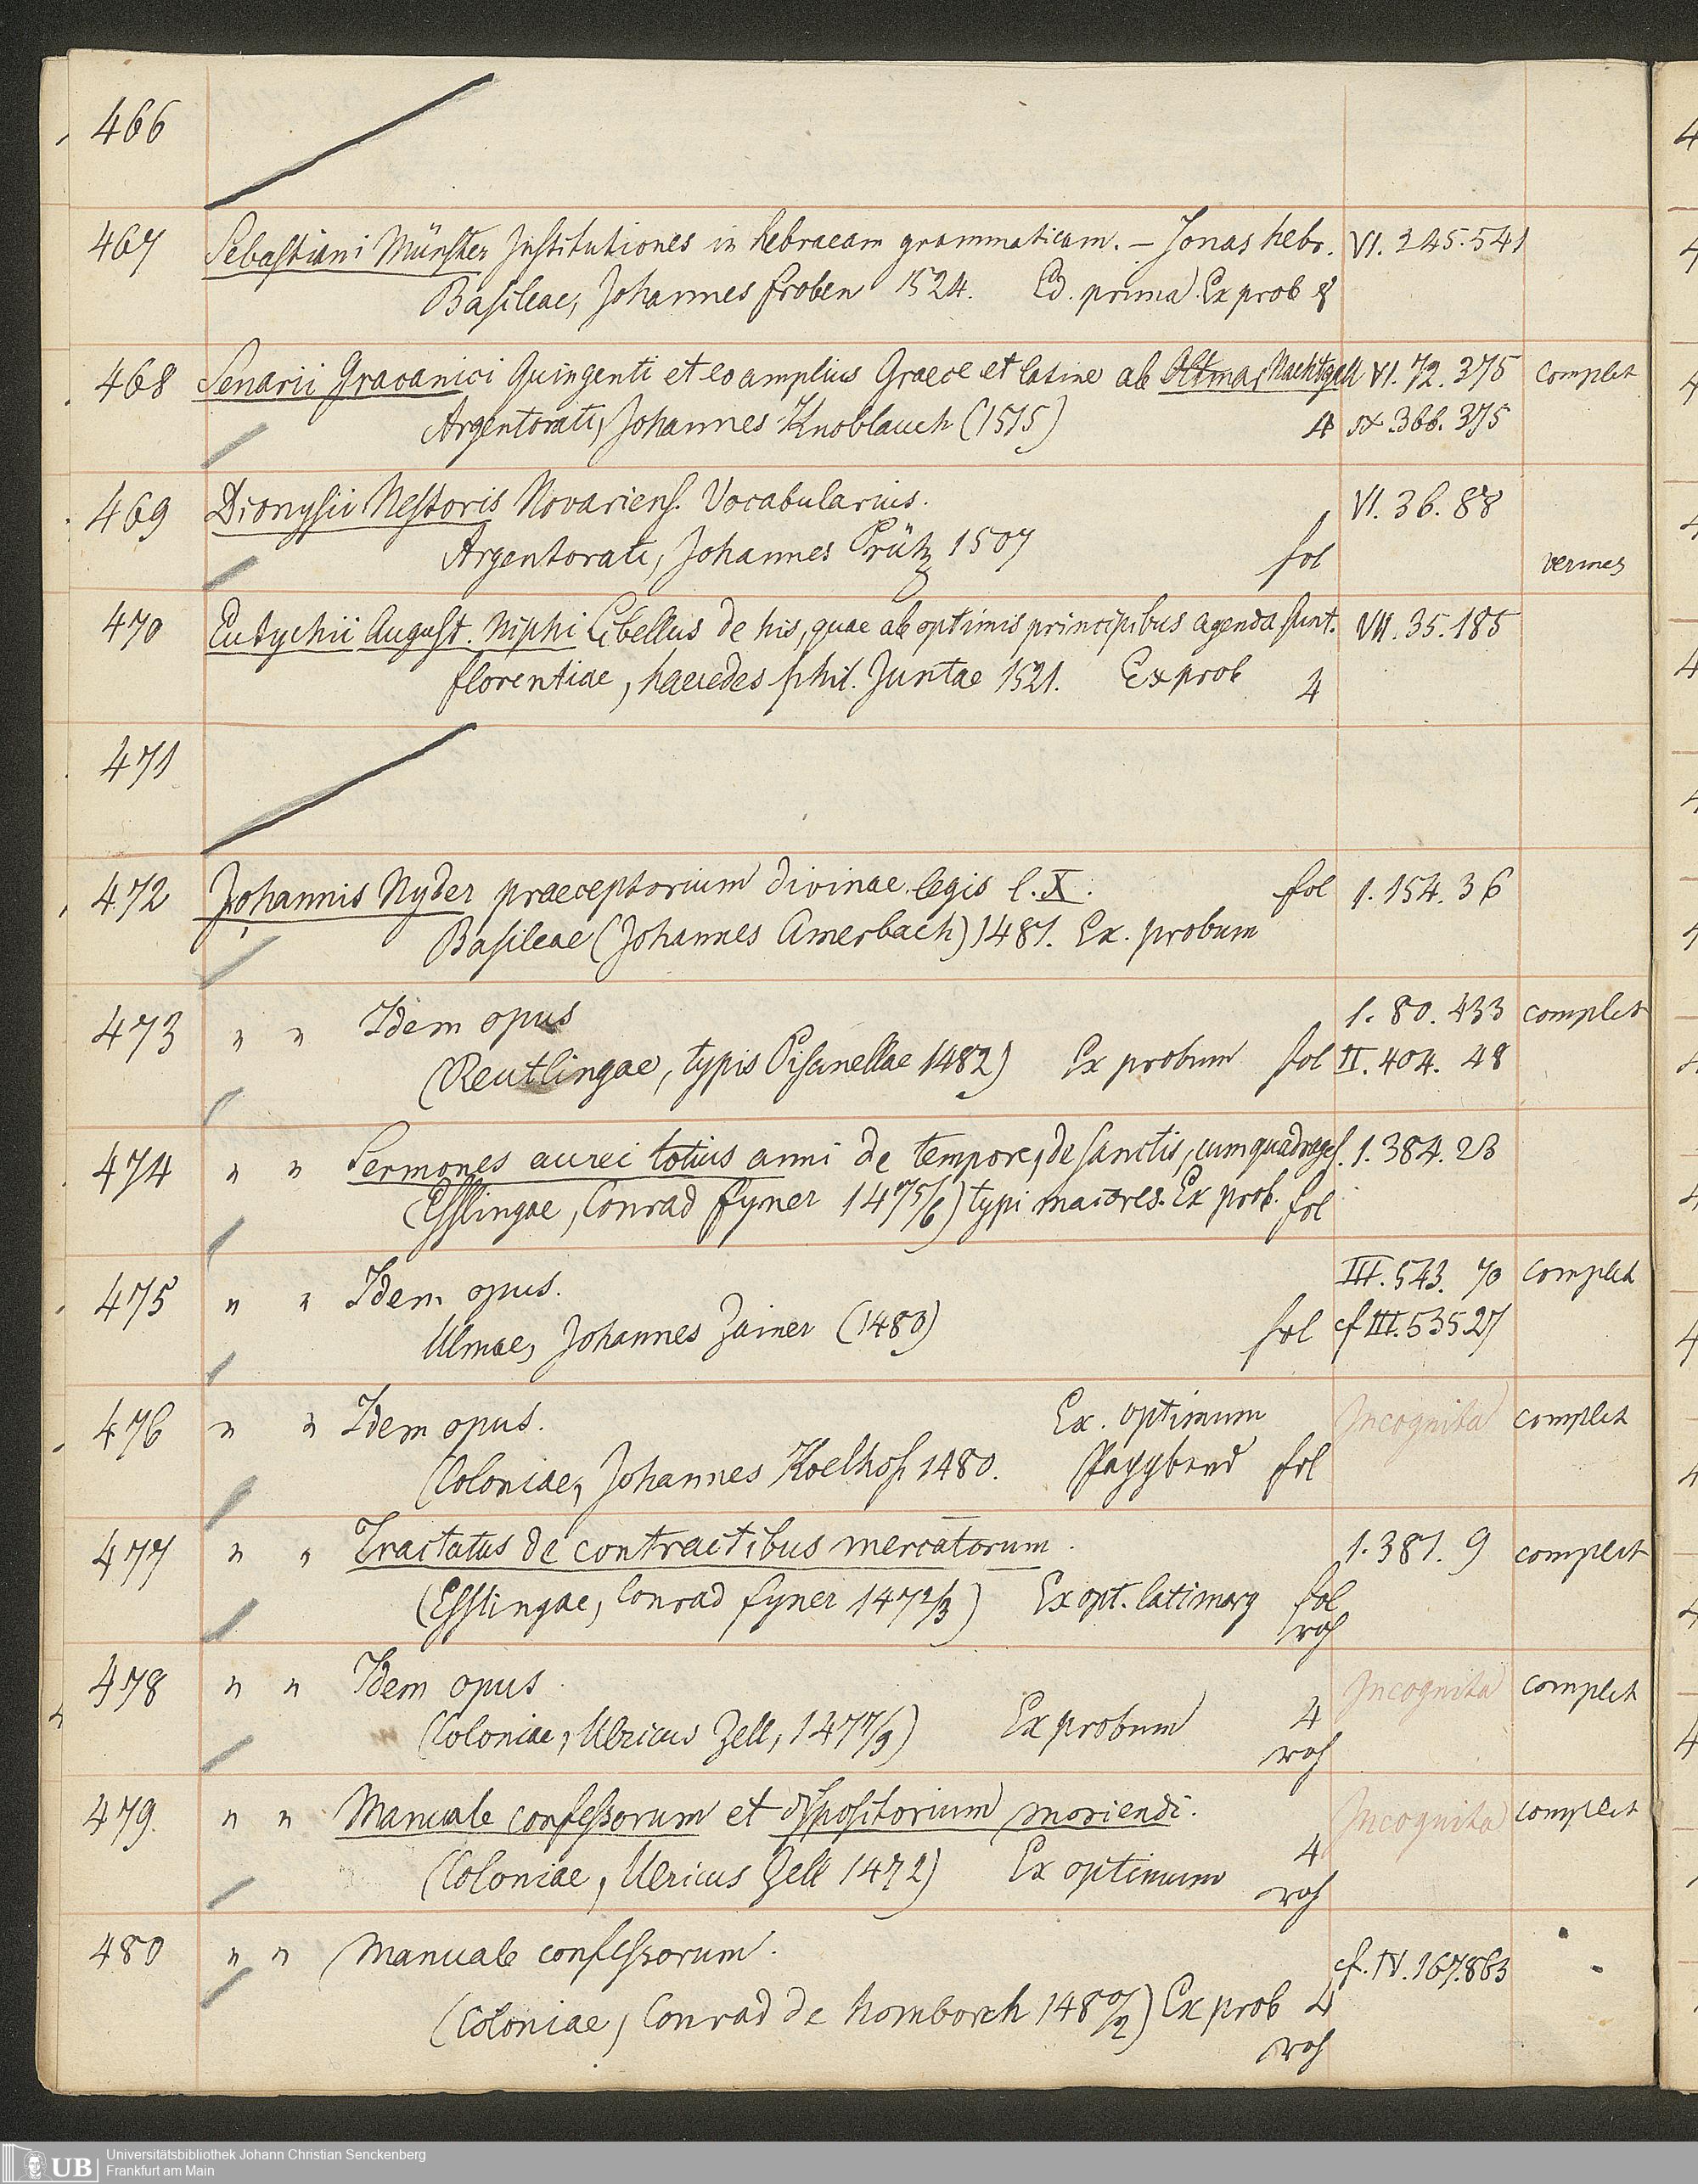 466
467 Sebastiani Münster Institutiones in hebraeam grammaticam. – Jonas hebr. VI. 245. 541
Basileae, Johannes Froben 1524. Ed. prima. Ex prob 8
468 Senarii Graecanici Quingenti et eo amplius Graece et latine ab Ottmar Nachtgall VI. 72. 375 complet
Argentorati, Johannes Knoblauch (1515) 4 IX 366. 375
469 Dionysii Nestoris Novariens. Vocabularius. VI. 36. 88
Argentorati, Johannes Prütz 1507 fol vermes
470 Eutychii August. Niphi Libellus de his, quae ab optimis principibus agenda sunt. VII. 35. 185
Florentiae, haeredes phil. Juntae 1521. Ex prob 4
471
472 Johannis Nyder praeceptorium divinae legis l. X. fol 1. 154. 36
Basileae (Johannes Amerbach) 1481. Ex. probum
473 " " Idem opus 1. 80. 433 complet
(Reutlingae, typis Pisanellae 1482) Ex probum fol II. 404. 48
474 " " Sermones aurei totius anni de tempore, de sanctis, cum quadrages. 1. 384. 23
(Esslingae, Conrad Fyner 1475/6) typi maiores. Ex prob. fol
475 " " Idem opus. III. 543. 70 complet
Ulmae, Johannes Zainer (1480) fol cf III. 535 27
476 " " Idem opus. Ex. optimum Incognita complet
Coloniae, Johannes Koelhof 1480. fol
477 " " Tractatus de contractibus mercatorum. 1. 381. 9 complet
(Esslingae, Conrad Fyner 1472/3) Ex opt. lati marg fol
roh
478 " " Idem opus Incognita complet
(Coloniae, Ulricus Zell, 1477/9) Ex probum 4
roh
479. " " Manuale confessorum et dispositorium moriendi. Incognita complet
(Coloniae, Ulricus Zell 1472) Ex optimum 4
roh
480 " " Manuale confessorum. cf. IV. 167. 863
(Coloniae, Conrad de homborch 1480/2) Ex prob 4
roh
UB Universitätsbibliothek Johann Christian Senckenberg
Frankfurt am Main